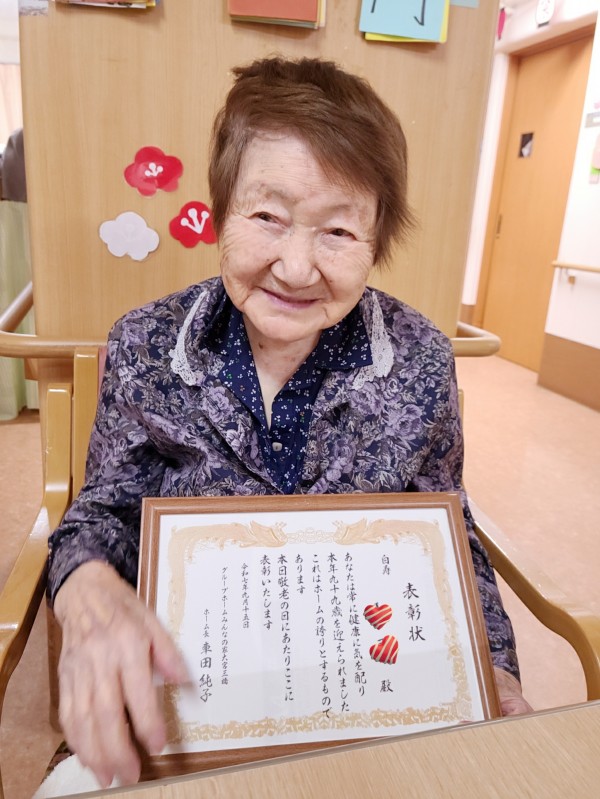 表彰状
白寿
殿
あなたは常に健康に気を配り
本年九十九歳を迎えられました
これはホームの誇りとするもので
あります
本日敬老の日にあたりここに
表彰いたします
令和七年九月十五日
グループホームみんなの家大宮三橋
ホーム長 車田 純子